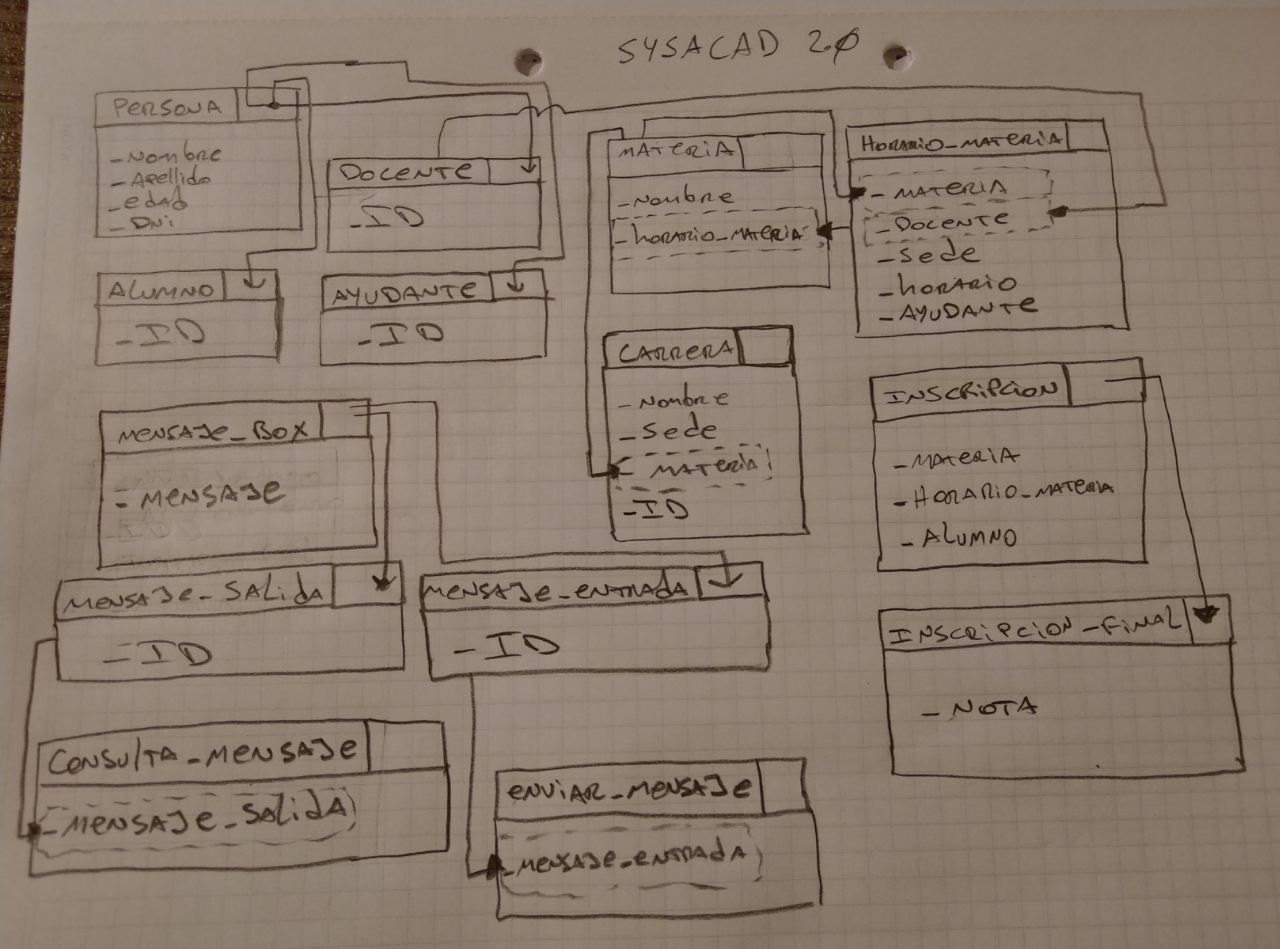 SYSACAD 2.0
PERSONA
- Nombre
- Apellido
- edad
- Dni
DOCENTE
- ID
ALUMNO
- ID
AYUDANTE
- ID
MATERIA
- Nombre
- horario_MATERIA
HORARIO_MATERIA
- MATERIA
- DOCENTE
- Sede
- horario
- AYUDANTE
CARRERA
- Nombre
- Sede
- MATERIA
- ID
INSCRIPCION
- MATERIA
- HORARIO_MATERIA
- ALUMNO
MENSAJE_BOX
- MENSAJE
MENSAJE_SALIDA
- ID
MENSAJE_ENTRADA
- ID
INSCRIPCION_FINAL
- NOTA
CONSULTA_MENSAJE
- MENSAJE_SALIDA
ENVIAR_MENSAJE
- MENSAJE_ENTRADA